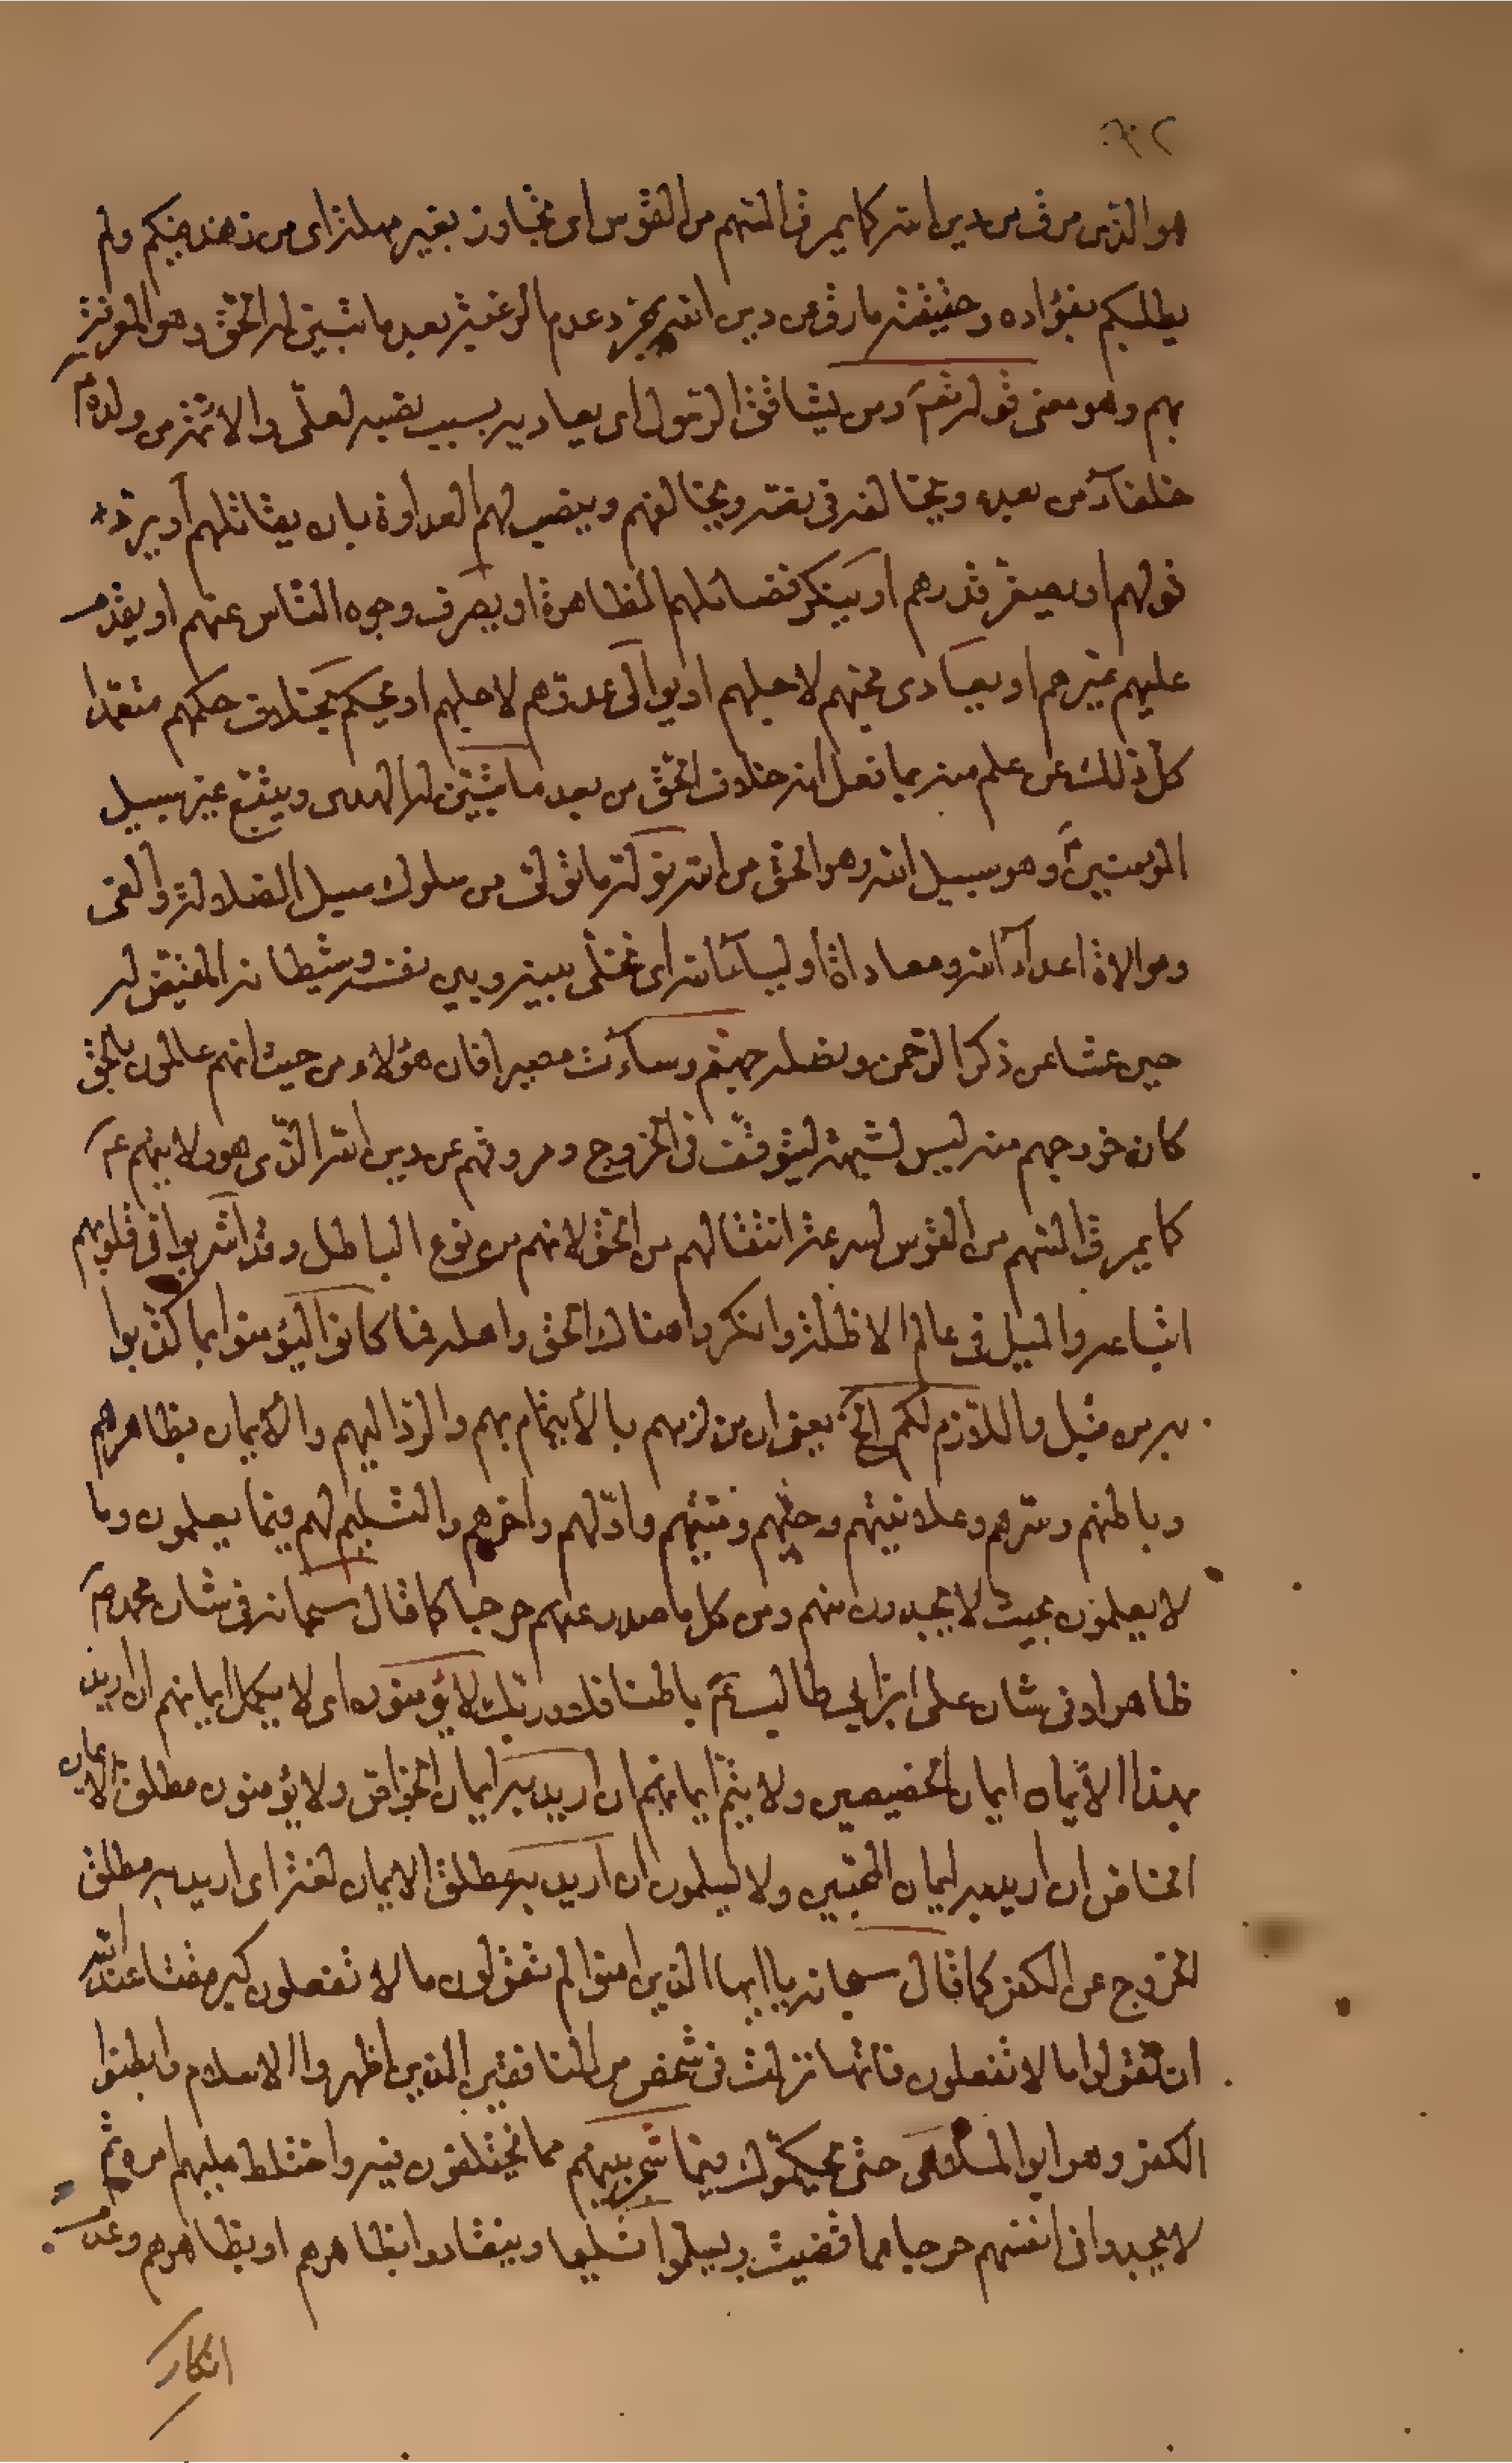 هو الذى مرق من دين الله كما يمرق السهم من القوس اى تجاوز بغير مهلة اى من زهد فيكم ولم
يطلبكم بفؤاده وحقيقته مارق من دين الله بمجرد عدم الرغبة بعد ما تبين له الحق وهو المعرفة
بهم وهو معنى قوله تعـ ومن يشاقق الرسول اى يعاديه بسبب نصبه لعلى والائمة من ولده عـ
خلفآء من بعده ويخالفه فى نفسه ويخالفهم وينصب لهم العداوة بان يقاتلهم او يرد
قولهم او يصغر قدرهم او ينكر فضائلهم الظاهرة او يصرف وجوه الناس عنهم او يقدم
عليهم غيرهم او يعادى محبهم لاجلهم او يوالى عدوهم لاجلهم او يحكم بخلاف حكمهم متعمدا
كل ذلك عن علم منه بما فعل انه خلاف الحق من بعد ما تبين له الهدى ويتبع غير سبيل
المؤمنين وهو سبيل الله وهو الحق من الله نوله ما تولى من سلوك سبيل الضلالة والغى
وموالاة اعدآء الله ومعاداة اوليآء الله اى نخلى بينه وبين نفسه وشيطانه المقيض له
حين عشا عن ذكر الرحمن ونصله جهنم وسآءت مصيرا فان هؤلاء من حيث انهم عالمون بالحق
كان خروجهم منه ليس لشبهة ليتوقف فى الخروج ومروقهم عن دين الله الذى هو ولايتهم عـ
كما يمرق السهم من القوس لسرعة انتقالهم من الحق لانهم من نوع الباطل وقد اشربوا فى قلوبهم
اتباعه والميل فى عالم الاظلة وانكروا هنالك الحق واهله فما كانوا ليؤمنوا بما كذبوا
به من قبل واللازم لكم الخ يعنى ان من لزمهم بالايتمام بهم والرد اليهم والايمان بظاهرهم
وباطنهم وسرهم وعلانيتهم وحيهم وميتهم واولهم واخرهم والتسليم لهم فيما يعلمون وما
لا يعلمون بحيث لا يجدون منهم ومن كل ما صدر عنهم حرجا كما قال سبحانه فى شان محمد صـ
ظاهرا وفى شان على ابن ابى طالب عـ باطنا فلا وربك لا يؤمنون اى لا يكمل ايمانهم ان اريد
بهذا الايمان ايمان الخصيصين ولا يتم ايمانهم ان اريد به ايمان الخواص ولا يؤمنون مطلق الايمان
الخاص ان اريد به ايمان المحبين ولا يسلمون ان اريد به مطلق الايمان لغة اى اريد به مطلق
الخروج عن الكفر كما قال سبحانه يا ايها الذين امنوا لم تقولون ما لا تفعلون كبر مقتا عند الله
ان تقولوا ما لا تفعلون فانها نزلت فى شخص من المنافقين الذين اظهروا الاسلام وابطنوا
الكفر وهو ابو حتى يحكموك فيما شجر بينهم مما يختلفون فيه واختلط عليهم امره ثم
لا يجدوا فى انفسهم حرجا مما قضيت ويسلموا تسليما وينقادوا بظاهرهم او بظاهرهم وعدم
انكار